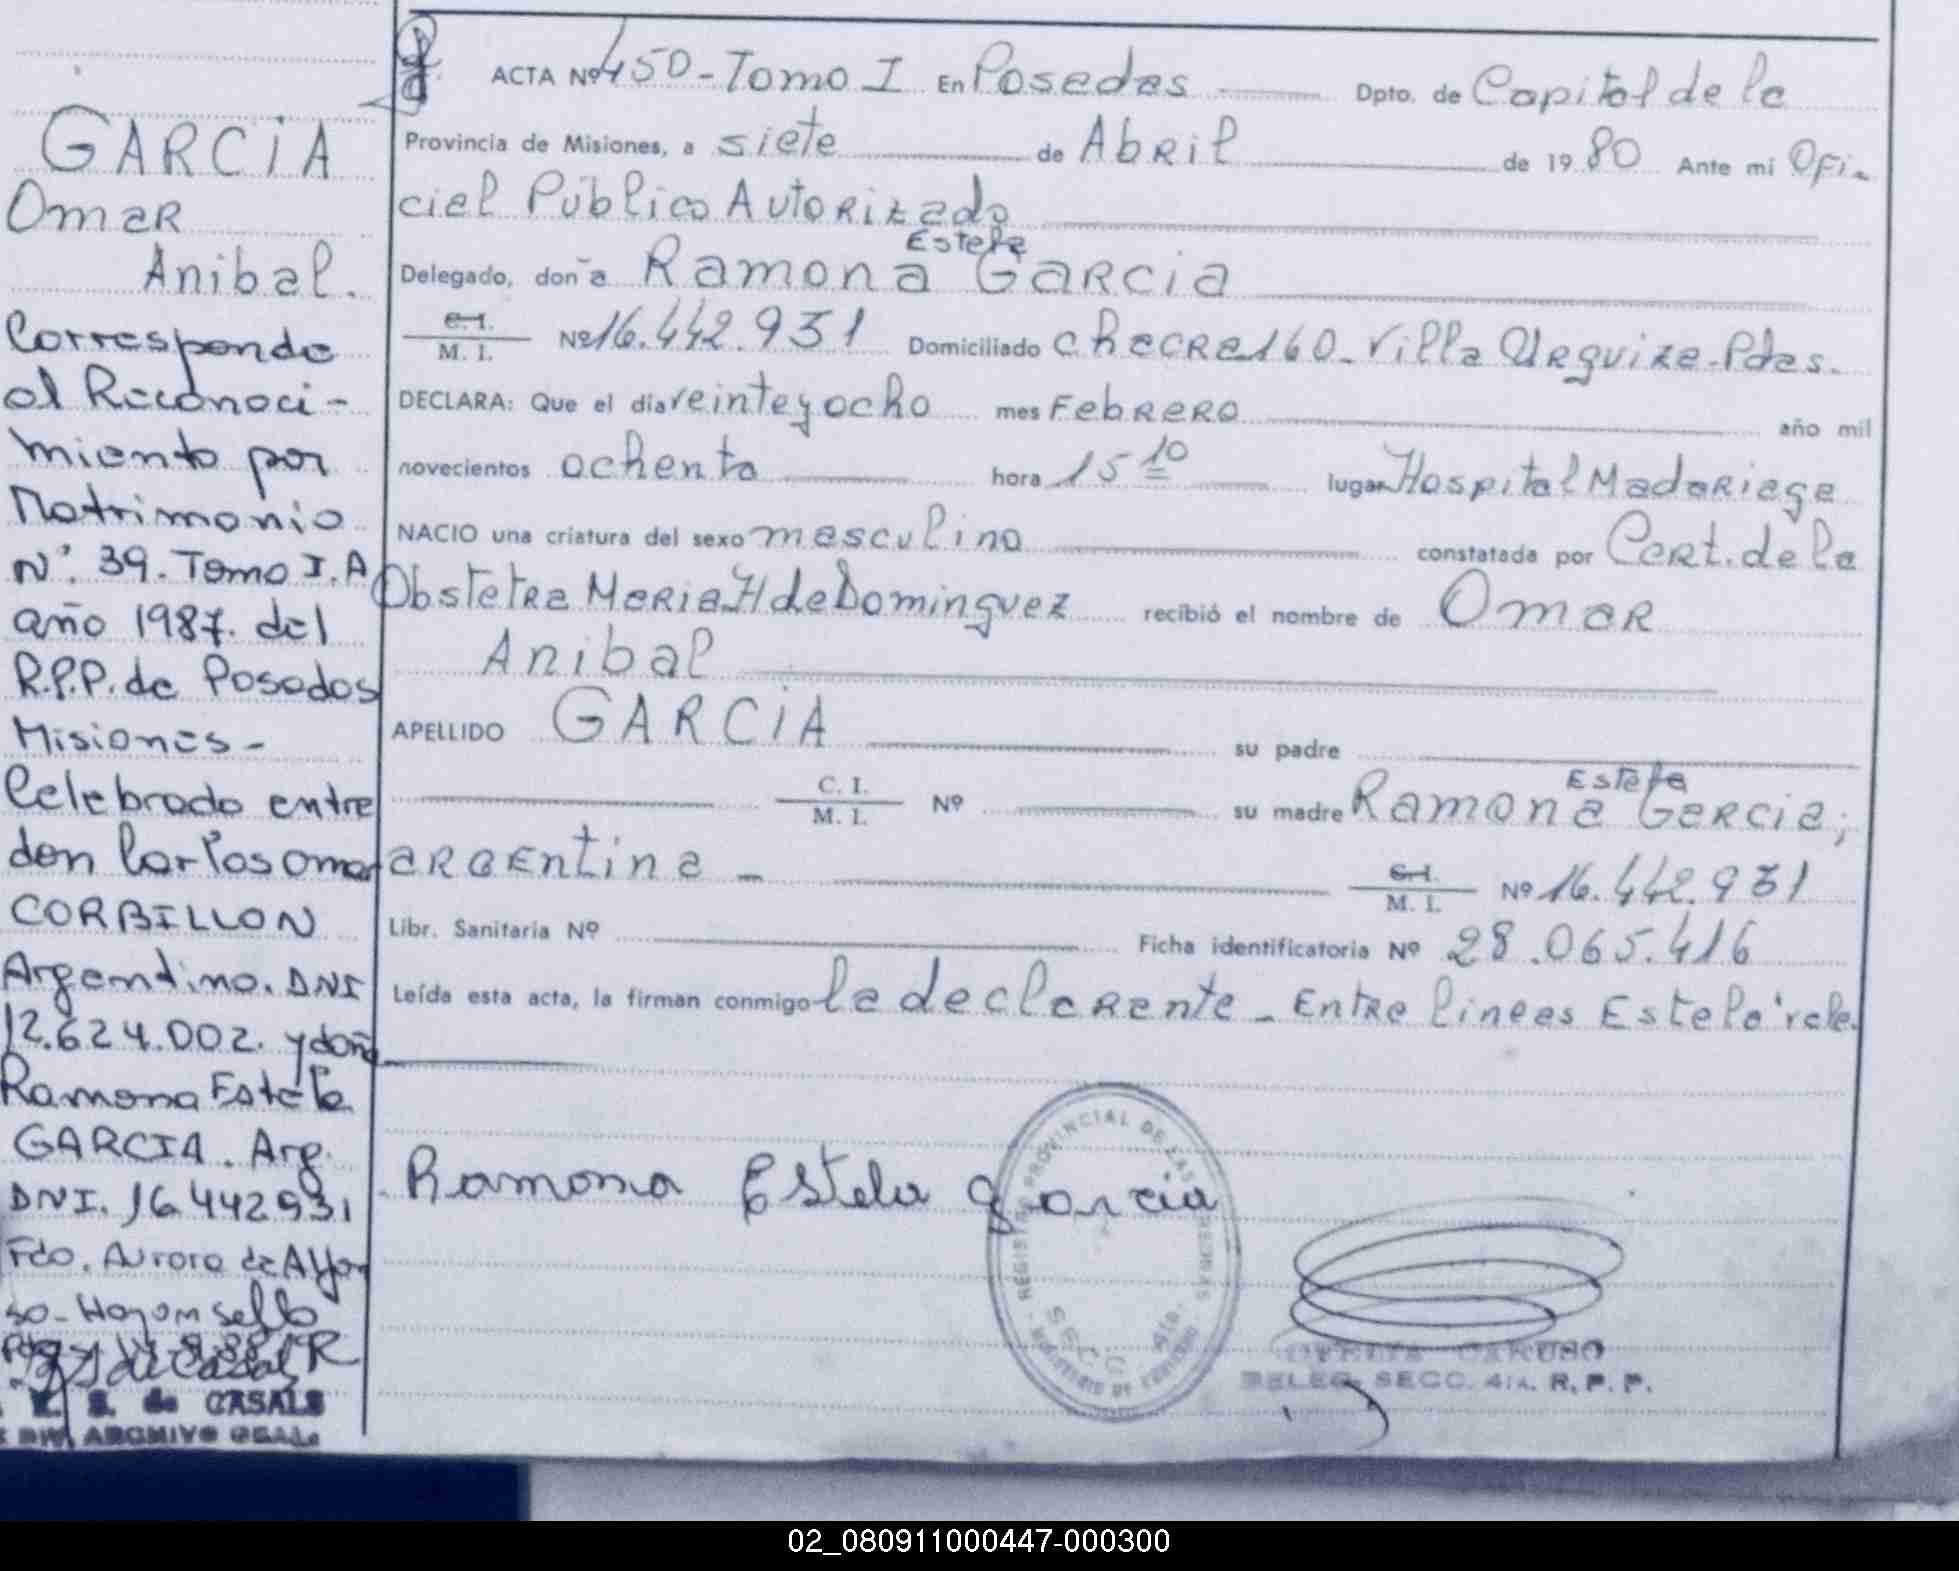 GARCIA
Omar
Anibal.
Corresponde
al Reconoci-
miento por
Matrimonio
Nº. 39. Tomo I. A
año 1987. del
R.P.P. de Posadas
Misiones-
Celebrado entre
don Carlos Omar
CORBILLON
Argentino. DNI
12.624.002. y doña
Ramona Estela
GARCIA. Arg.
DNI. 16.442931
Fdo. Aurora de Alfon
so- Hay un sello
S. de CASALS
DIV. ARCHIVO GRAL.
ACTA Nº 450 - Tomo I En Posadas Dpto. de Capital de la
Provincia de Misiones, a siete de Abril de 1980 Ante mi Ofi-
cial Público Autorizado
Estela
Delegado, doña Ramona Garcia
C.I. / M. I. Nº 16.442.931 Domiciliado chacra 160- Villa Urquiza- Pdas.
DECLARA: Que el dia veinteyocho mes Febrero año mil
novecientos ochenta hora 15 10 lugar Hospital Madariaga
NACIO una criatura del sexo masculino constatada por Cert. de la
Obstetra Maria H de Dominguez recibió el nombre de Omar
Anibal
APELLIDO GARCIA su padre
Estela
C. I. / M. I. Nº su madre Ramona Garcia;
argentina - C.I. / M. I. Nº 16.442.931
Libr. Sanitaria Nº Ficha identificatoria Nº 28.065.416
Leída esta acta, la firman conmigo la declarante - Entre lineas Estela vale.
Ramona Estela Garcia
REGISTRO PROVINCIAL DE LAS PERSONAS
SECC. 4ta.
MINISTERIO DE GOBIERNO
CARUSO
DELEG. SECC. 4ta. R. P. P.
02_080911000447-000300